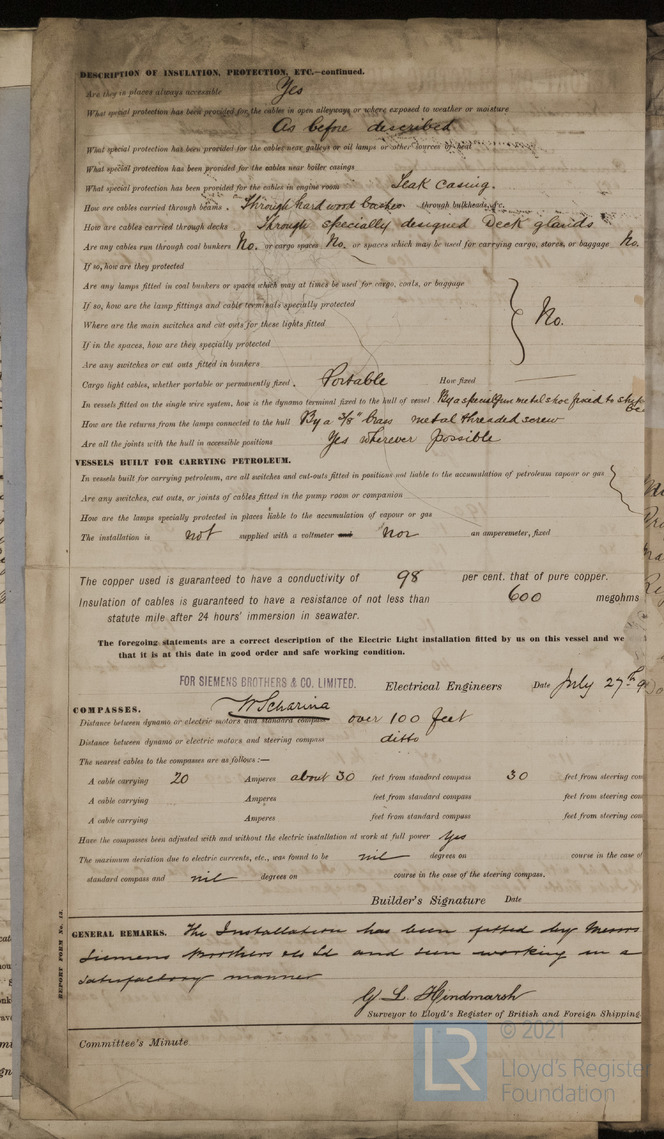 DESCRIPTION OF INSULATION, PROTECTION, ETC.—continued.
Are they in places always accessible Yes
What special protection has been provided for the cables in open alleyways or where exposed to weather or moisture
As before described
What special protection has been provided for the cables near galleys or oil lamps or other sources of heat
What special protection has been provided for the cables near boiler casings
What special protection has been provided for the cables in engine room Teak casing.
How are cables carried through beams. Through hard wood through bulkheads, &c.
How are cables carried through decks Through specially designed Deck glands
Are any cables run through coal bunkers No. or cargo spaces No. or spaces which may be used for carrying cargo, stores, or baggage No.
If so, how are they protected
Are any lamps fitted in coal bunkers or spaces which may at times be used for cargo, coals, or baggage
If so, how are the lamp fittings and cable terminals specially protected
Where are the main switches and cut outs for these lights fitted No.
If in the spaces, how are they specially protected
Are any switches or cut outs fitted in bunkers
Cargo light cables, whether portable or permanently fixed. Portable How fixed
In vessels fitted on the single wire system, how is the dynamo terminal fixed to the hull of vessel By a special gun metal shoe fixed to
How are the returns from the lamps connected to the hull By a 3/8" brass metal threaded screw
Are all the joints with the hull in accessible positions Yes wherever possible
VESSELS BUILT FOR CARRYING PETROLEUM.
In vessels built for carrying petroleum, are all switches and cut-outs fitted in positions not liable to the accumulation of petroleum vapour or gas
Are any switches, cut outs, or joints of cables fitted in the pump room or companion
How are the lamps specially protected in places liable to the accumulation of vapour or gas
The installation is not supplied with a voltmeter and nor an amperemeter, fixed
The copper used is guaranteed to have a conductivity of 98 per cent. that of pure copper.
Insulation of cables is guaranteed to have a resistance of not less than 600 megohms
statute mile after 24 hours' immersion in seawater.
The foregoing statements are a correct description of the Electric Light installation fitted by us on this vessel and we
that it is at this date in good order and safe working condition.
FOR SIEMENS BROTHERS & CO. LIMITED. Electrical Engineers Date July 27th
COMPASSES.
Distance between dynamo or electric motors and standard compass over 100 feet
Distance between dynamo or electric motors and steering compass ditto
The nearest cables to the compasses are as follows:—
A cable carrying 20 Amperes about 30 feet from standard compass 30 feet from steering com
A cable carrying Amperes feet from standard compass feet from steering com
A cable carrying Amperes feet from standard compass feet from steering com
Have the compasses been adjusted with and without the electric installation at work at full power Yes
The maximum deviation due to electric currents, etc., was found to be nil degrees on course in the case of
standard compass and nil degrees on course in the case of the steering compass.
Builder's Signature Date
REPORT FORM No. 13.
GENERAL REMARKS. The Installation has been fitted by Messrs
Siemens Brothers & Co Ld and seen working in a
satisfactory manner
G. L. Hindmarsh
Surveyor to Lloyd's Register of British and Foreign Shipping
Committee's Minute
LR © 2021
Lloyd's Register
Foundation